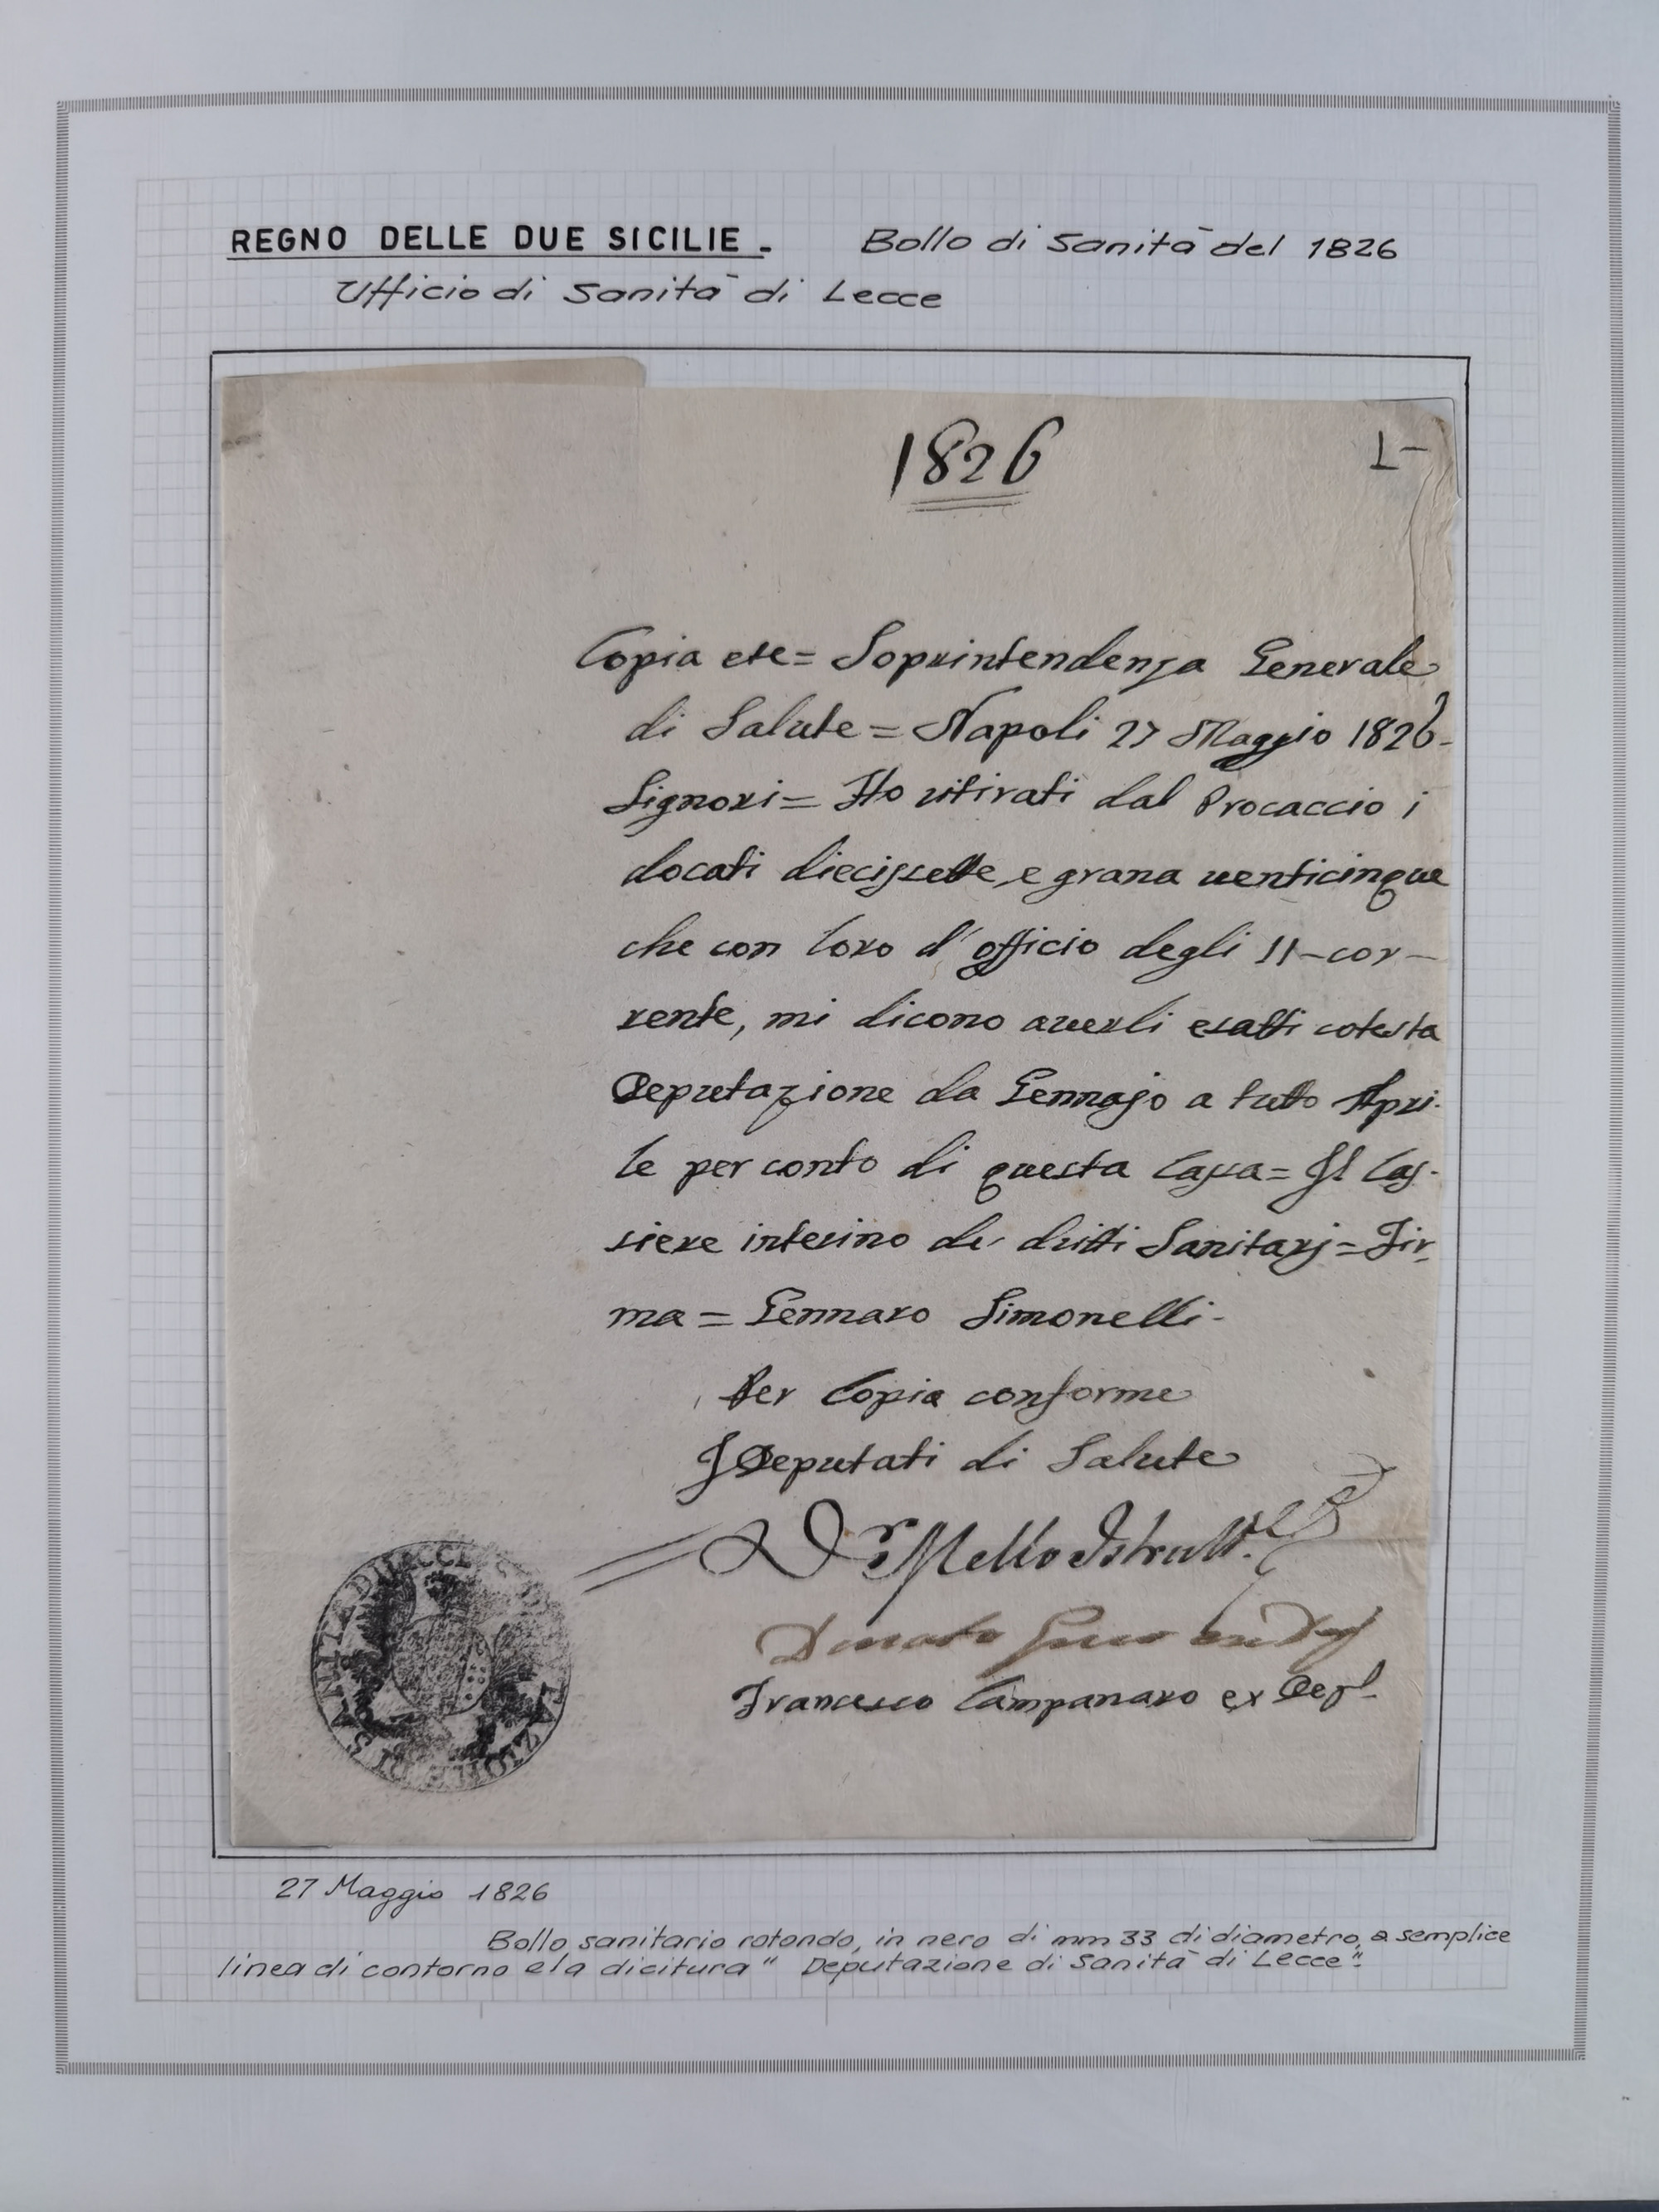 REGNO DELLE DUE SICILIE - Bollo di Sanità del 1826
Ufficio di Sanità di Lecce
1826
1-
Copia ete= Soprintendenza Generale
di Salute = Napoli 27 Maggio 1826-
Signori = Ho ritirati dal Procaccio i
docati diecissette, e grana venticinque
che con loro d'officio degli 11-cor-
rente, mi dicono averli esatti cotesta
Deputazione da Gennajo a tutto Apri-
le per conto di questa Cassa = Il Cas-
siere interino de' dritti Sanitarj = Fir-
ma = Gennaro Simonelli-
Per Copia conforme
I Deputati di Salute
Dr Mello
Donato
Francesco Campanaro ex Depl
DI SANITÀ DI LECCE
27 Maggio 1826
Bollo sanitario rotondo, in nero di mm 33 di diametro, a semplice
linea di contorno e la dicitura " Deputazione di Sanità di Lecce".